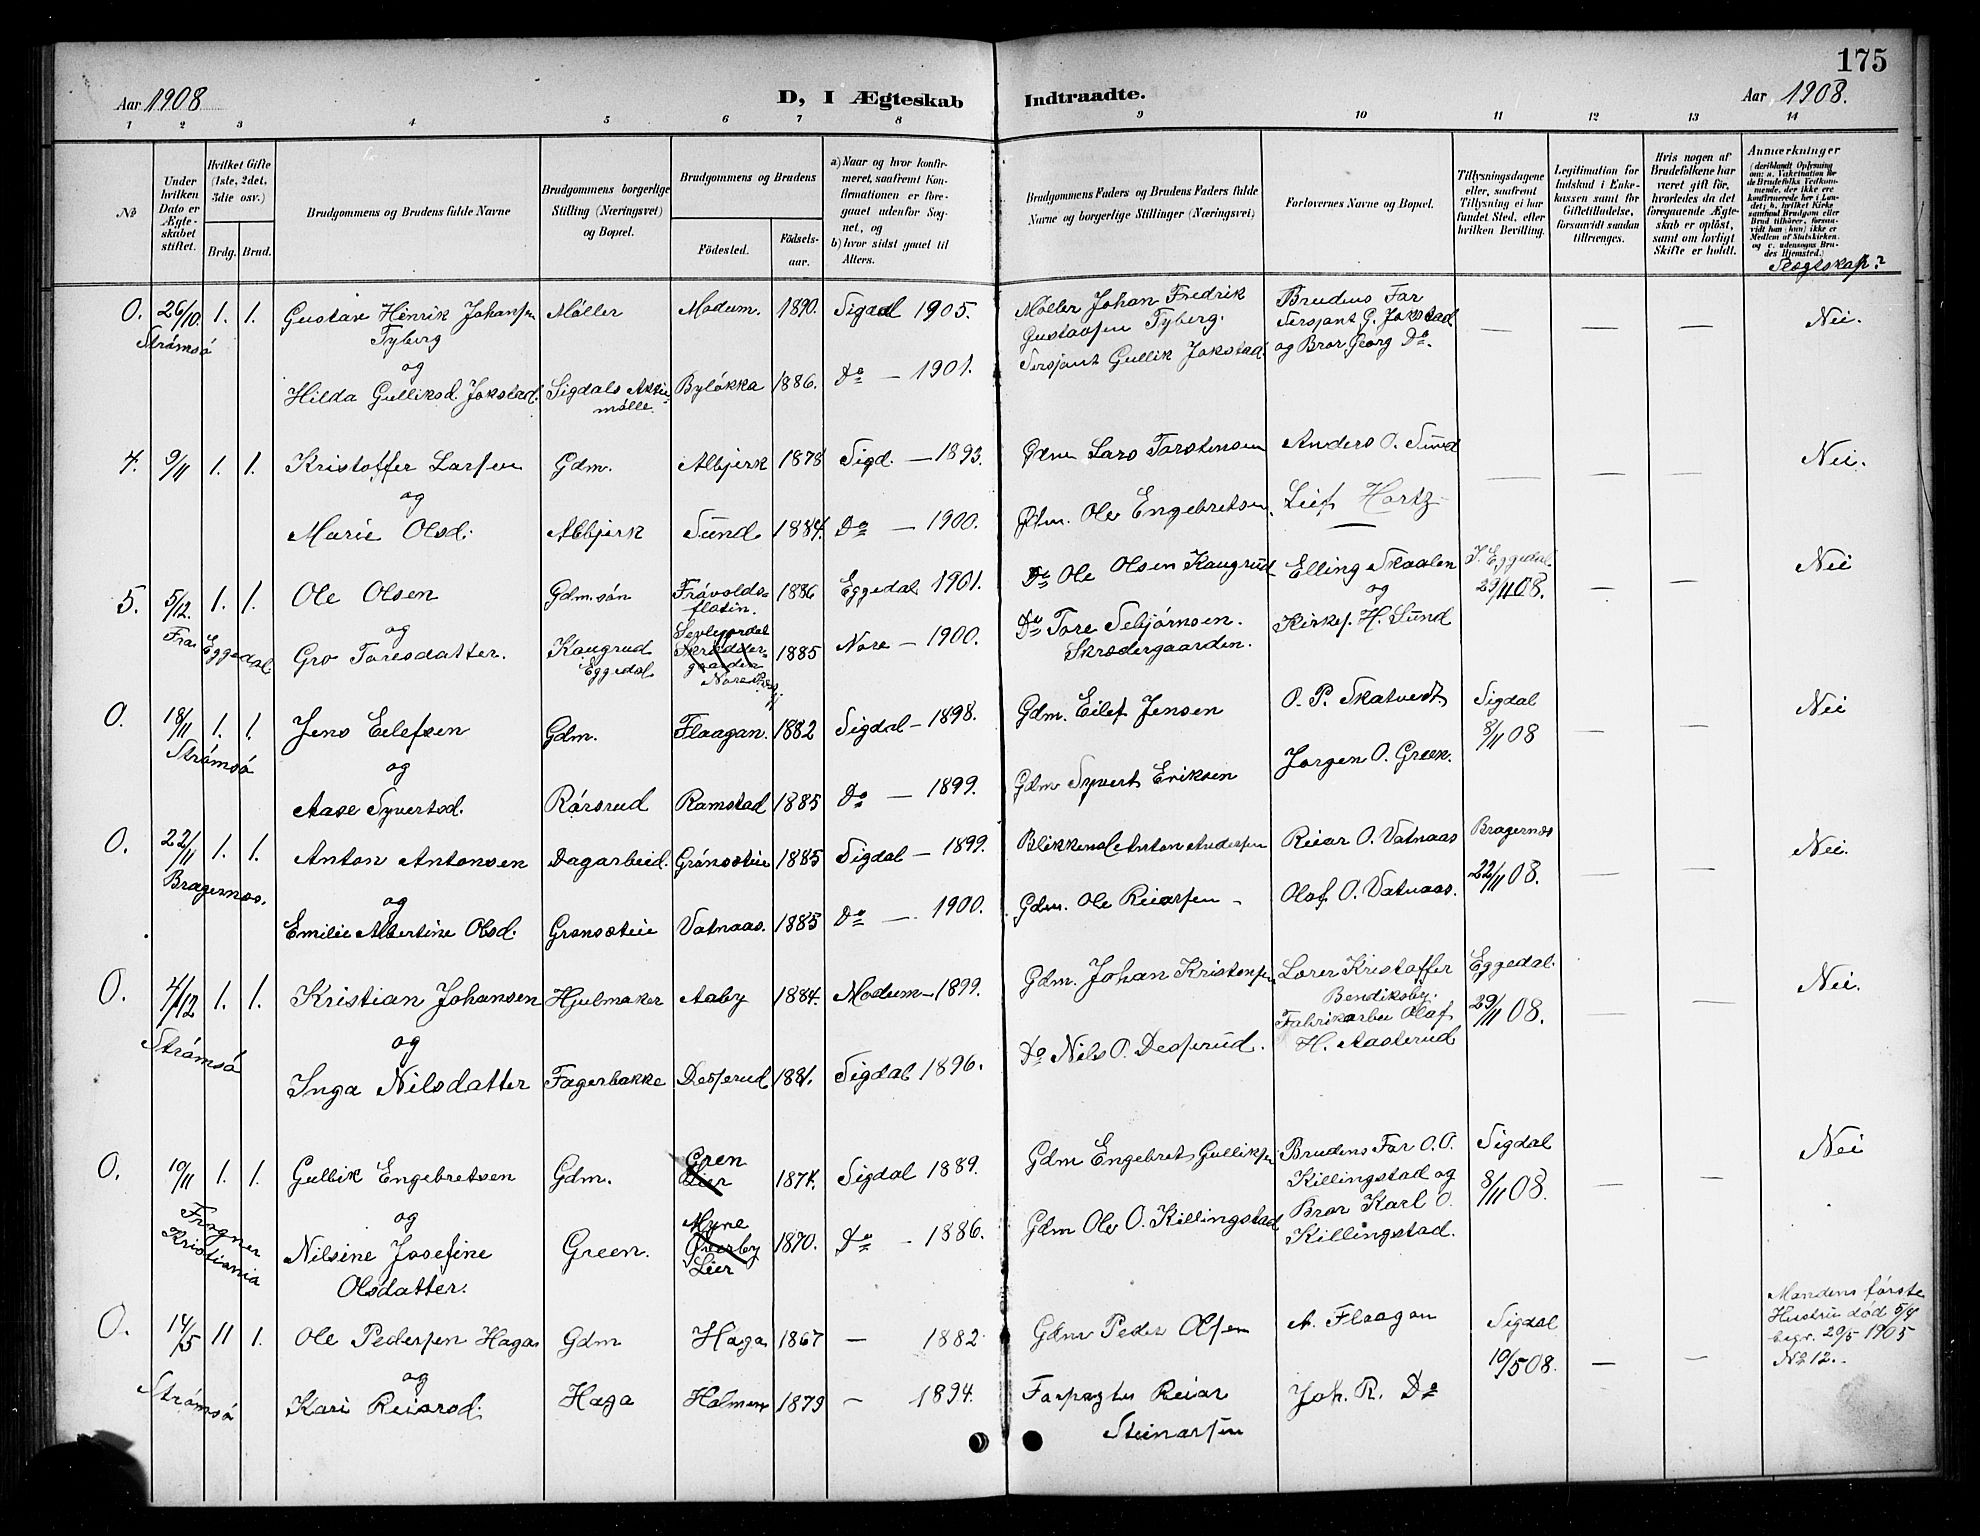 175
Aar 1908
D, I Ægteskab Indtraadte.
Aar 1908.
1 2 3 4 5 6 7 8 9 10 11 12 13 14
No
Under hvilken Dato er Ægteskabet stiftet.
Hvilket Gifte (1ste, 2det, 3die osv.)
Brdg. Brud.
Brudgommens og Brudens fulde Navne
Brudgommens borgerlige Stilling (Næringsvei) og Bopæl.
Brudgommens og Brudens
Födested.
Födselsaar.
a) Naar og hvor konfirmeret, saafremt Konfirmationen er foregaaet udenfor Sognet, og
b) hvor sidst gaaet til Alters.
Brudgommens Faders og Brudens Faders fulde Navne og borgerlige Stillinger (Næringsvei)
Forlovernes Navne og Bopæl.
Tillysningsdagene eller, saafremt Tillysning ei har fundet Sted, efter hvilken Bevilling.
Legitimation for Indskud i Enkekassen samt for Giftetilladelse, forsaavidt saadan tiltrænges.
Hvis nogen af Brudefolkene har været gift för, hvorledes da det foregaaende Ægteskab er oplöst, samt om lovligt Skifte er holdt.
Anmærkninger
(deriblandt Oplysning om: a. Vakcination for de Brudefolks Vedkommende, der ikke ere konfirmerede her i Landet; b. hvilket Kirkesamfund Brudgom eller Brud tilhører, forsaavidt han (hun) ikke er Medlem af Statskirken og c. udensogns Brudes Hjemsted.)
Slægtskap?
0. 26/10. 1. 1. Gustav Henrik Johansen Møller Modum. 1890. Sigdal 1905. Møller Johan Fredrik Brudens Far — — — Nei.
Strømsø Tyberg Gustavsen Tyberg. Sersjant G. Jokstad
og Sersjant Gullik Jokstad. og Bror Georg Do.
Hilda Gulliksd. Jokstad. Sigdals Aktiemølle. Byløkka 1886. Do — 1901.
4. 9/11 1. 1. Kristoffer Larsen Gdm. Albjerk 1878 Sigd. — 1893. Gdm Lars Torstensen Anders O. Sund — — — Nei.
og
Marie Olsd. Albjerk Sund 1884. Do — 1900. Gdm. Ole Engebretsen. Leif Hartz
5. 5/12. 1. 1. Ole Olsen Gdm.søn Frøvoldsflatin. 1886 Eggedal 1901. Do Ole Olsen Kaugrud Elling Skaalen I. Eggedal — — Nei
Fra Eggedal og og 29/11 08.
Gro Toresdatter. Kaugrud i Eggedal Nore 1885 Nore — 1900. Do Tore Sebjørnsen. Kirkes. H. Sund
Skrædergaarden.
0. 18/11 1. 1. Jens Eilefsen Gdm. Flaagan. 1882 Sigdal — 1898. Gdm. Eilef Jensen O. P. Skatvedt Sigdal — — Nei
Strømsø og 8/11 08
Aase Syvertsd. Rørsrud Ramstad 1885 Do — 1899. Gdm Syvert Eriksen Jørgen O. Green.
0. 22/11 1. 1. Anton Antonsen Dagarbeid. Grønsteie 1885 Sigdal — 1899. Blikkensl. Anton Andersen Reiar O. Vatnaas Bragernæs — — Nei.
Bragernæs. og 22/11 08.
Emilie Albertine Olsd. Grønsteie Vatnaas. 1885 Do — 1900. Gdm. Ole Reiarsen — Olaf O. Vatnaas.
0. 4/12 1. 1. Kristian Johansen Hjulmaker Aaby 1884. Modum — 1899. Gdm. Johan Kristensen Lærer Kristoffer Bendiksby. Eggedal. — — Nei.
Strømsø og Fabrikarbei Olaf 29/11 08.
Inga Nilsdatter Fagerbakke Desserud 1881. Sigdal 1896. Do Nils O. Desserud. H. Aasterud
0. 10/11 1. 1. Gullik Engebretsen Gdm. Gren Lier 1874. Sigdal 1889. Gdm Engebret Gulliksen Brudens Far O. O. Sigdal — — Nei
Frogner Kristiania og Killingstad og 8/11 08.
Nilsine Josefine Green. Myne Øverby Lier 1870. Do — 1886. Gdm Ole O. Killingstad Bror Karl O.
Olsdatter. Killingstad.
0. 14/5 11 1. Ole Pedersen Haga Gdm Haga 1867 — 1882. Gdm Peder Olsen A. Flaagan Sigdal — — Mandens første
Strømsø og 10/5 08. Hustru død 5/4
Kari Reiarsd. Haga Holmen 1879 — 1894. Forpagter Reiar Joh. R. Do begr. 20/5 1905
Steinarsen No 12.